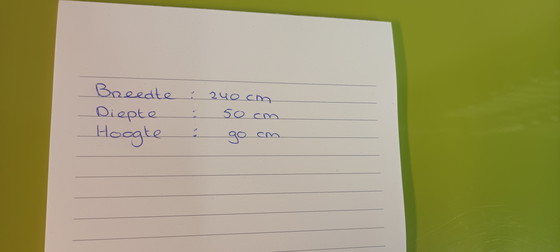 Breedte : 240 cm
Diepte : 50 cm
Hoogte : 90 cm